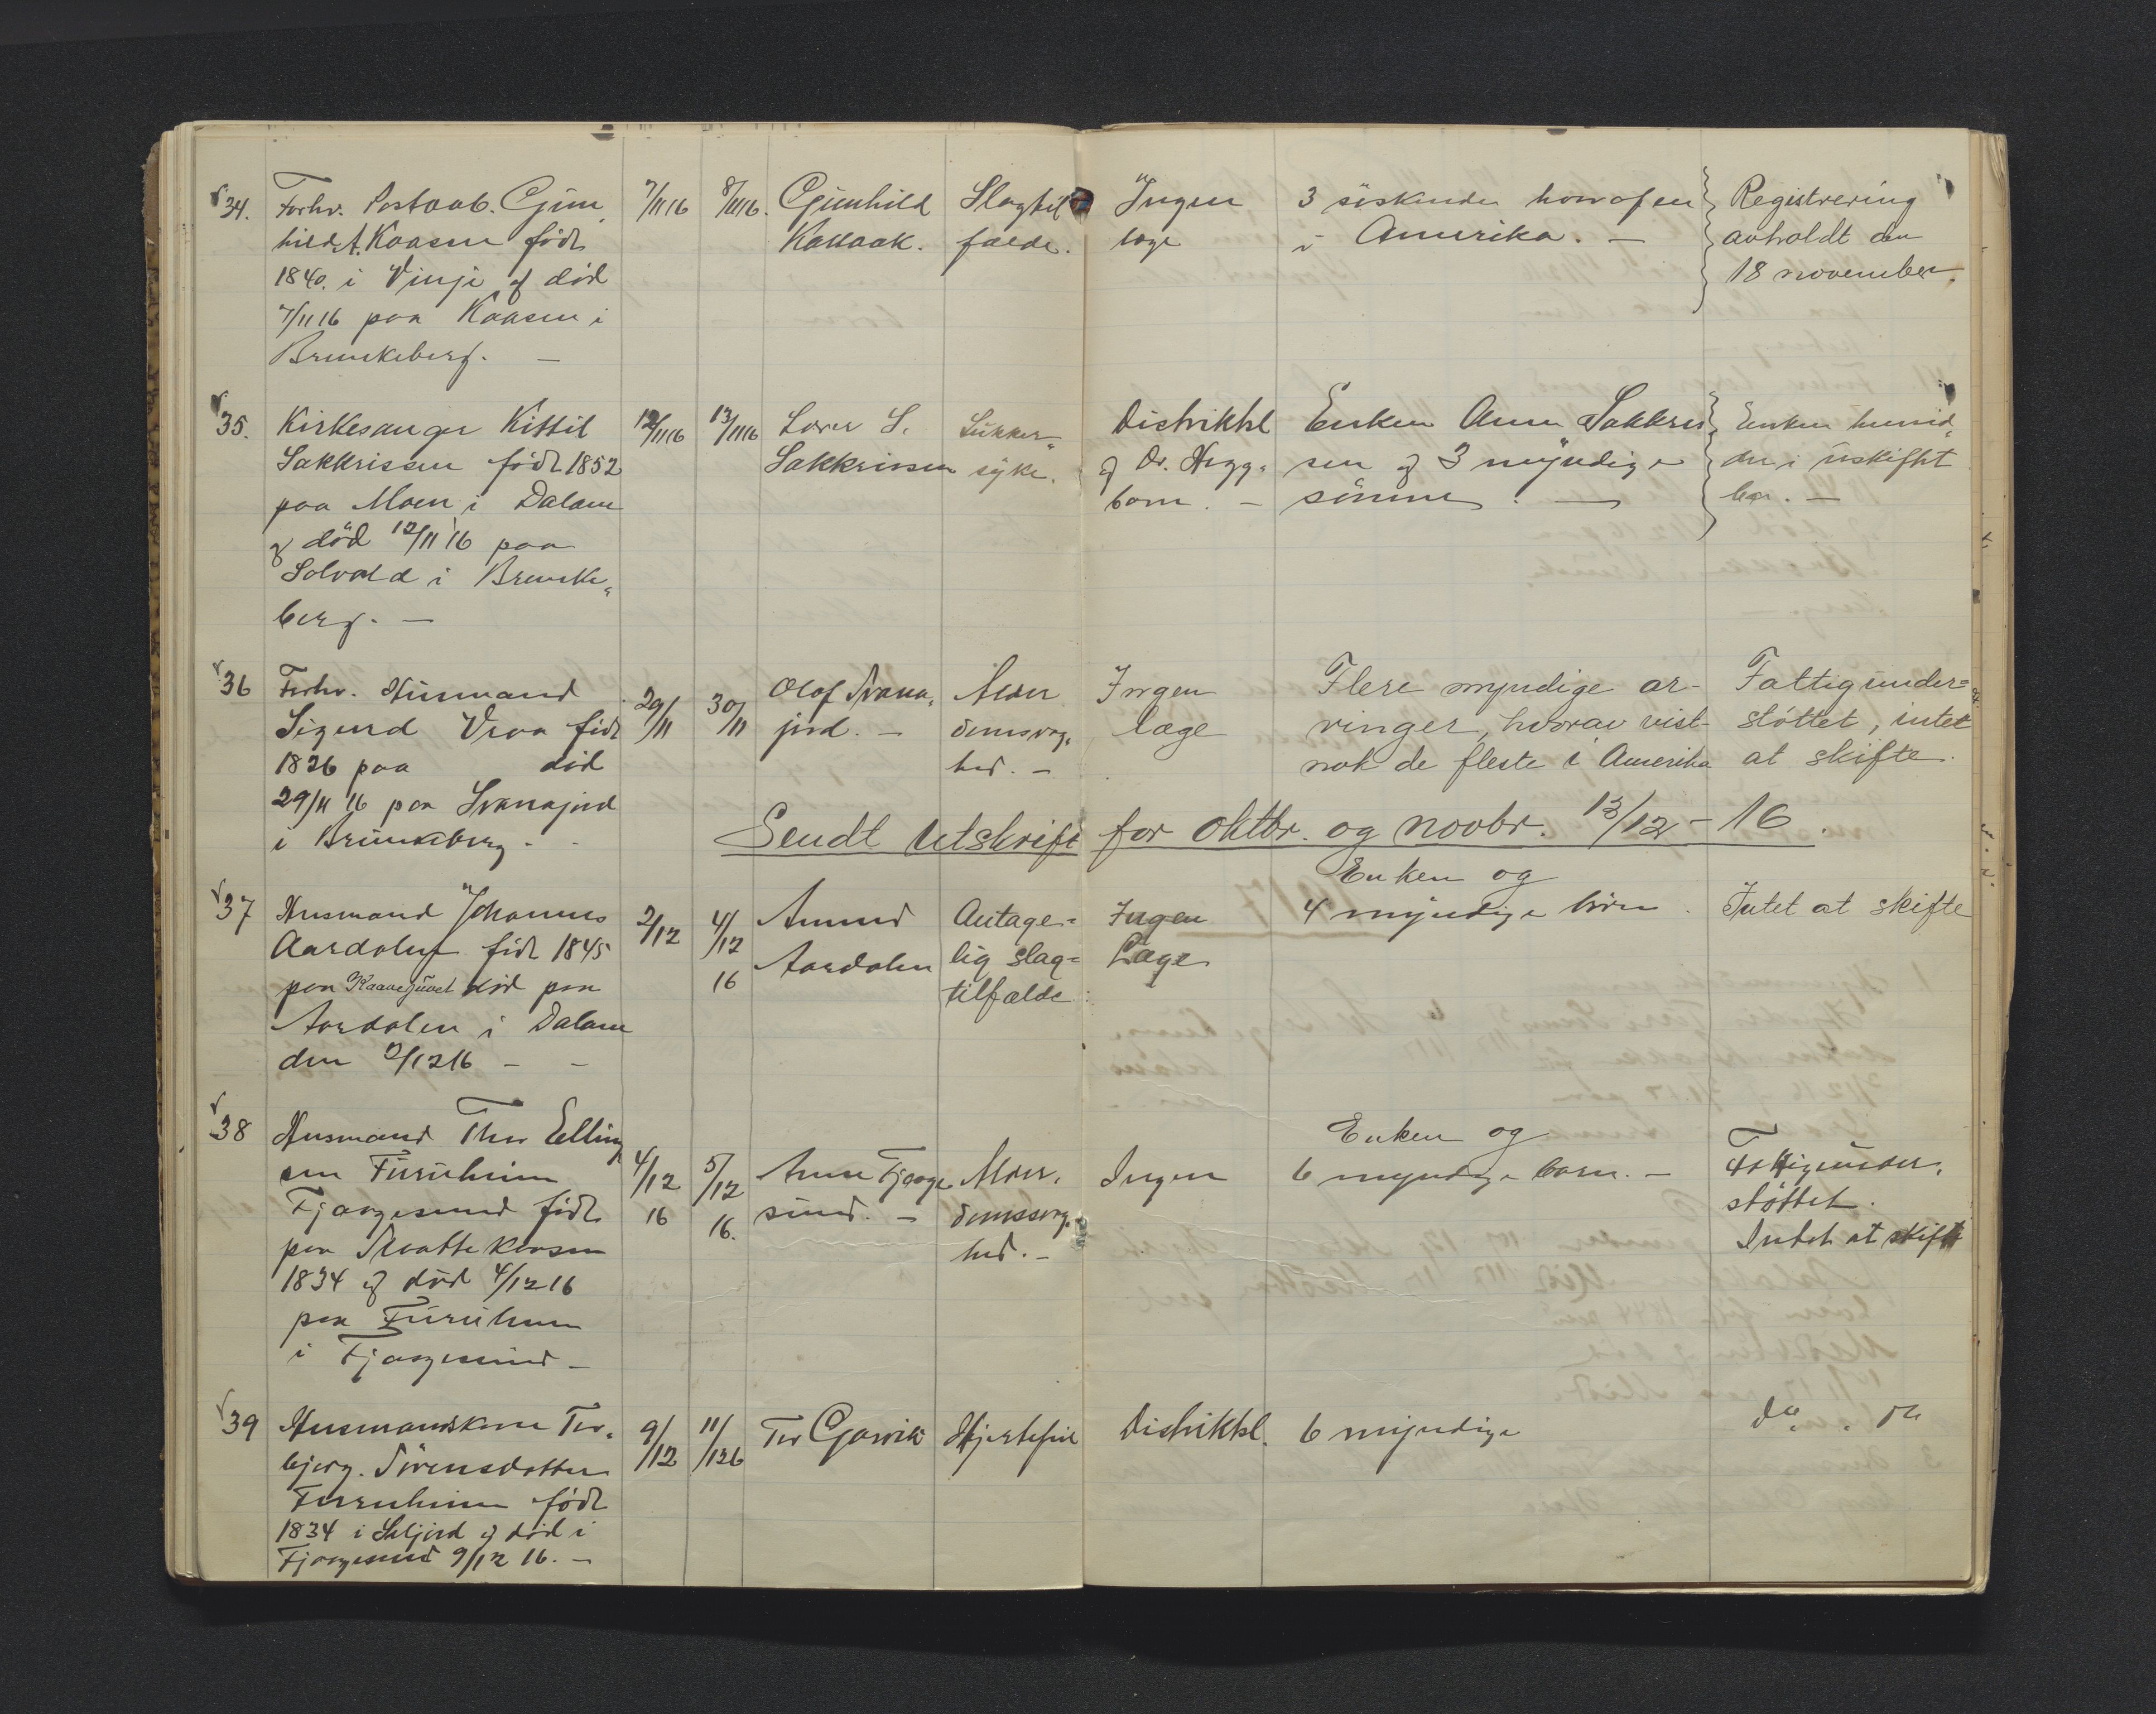 34.
Forhv. Postaab. Gun„
hild A. Kaasen född
1840. i Vinje og död
7/11 16 paa Kaasen i
Brunkeberg. —
7/11 16
8/11 16.
Gunhild
Kakaak.
Slagtil
fælde.
Ingen
læge
3 söskende hvoraf en
i Amerika. —
Registrering
avholdt den
18 november.
35.
Kirkesanger Kittil
Sakkrissen född 1852
paa Moen i Dalane
og död 12/11 16 paa
Solvold i Brunke„
berg. —
12/11 16
13/11 16
Lærer S.
Sakkrissen
Sukker„
syke.
Distriktsl
og Dr. Hegg„
tom. —
Enken Anne Sakkris
sen og 3 myndige
sönner. —
Enken hensid„
der i uskiftet
bo. —
36
Forhv. Husmand
Sigurd Vraa född
1826 paa död
29/11 16 paa Svanajord
i Brunkeberg. -
29/11
30/11
Olaf Svana„
jord. —
Alder
domssvag„
hed. —
Ingen
læge
Flere myndige ar-
vinger, hvorav vist-
nok de fleste i Amerika
Fattigunder=
støttet, intet
at skifte.
Sendt utskrift for oktbr. og novbr. 13/12 - 16.
37
Husmand Johannes
Aardalen född 1845
paa Kaavejuvet död paa
Aardalen i Dalane
den 2/12 16 — -
2/12
4/12
16
Amund
Aardalen
Antage=
lig slag=
tilfælde
Ingen
Læge
Enken og
4 myndige börn.
Intet at skifte
38
Husmand Thor Elling
sen Furuheim
Fjaagesund född
paa Kaasen
1834 og död 4/12 16
paa Furuheim
i Fjaagesund —
4/12
16
5/12
16.
Anne Fjaage
sund. —
Alder„
domssvag„
hed. —
Ingen
Enken og
6 myndige barn. —
Fattigunder„
støttet.
Intet at skifte
39
Husmandskone Tor„
bjørg Sörensdatter
Furuheim född
1834 i Seljord og död i
Fjaagesund 9/12 16. —
9/12
11/12 6
Tor Gjarvik
Hjertefeil
Distriktsl.
6 myndige
do. do